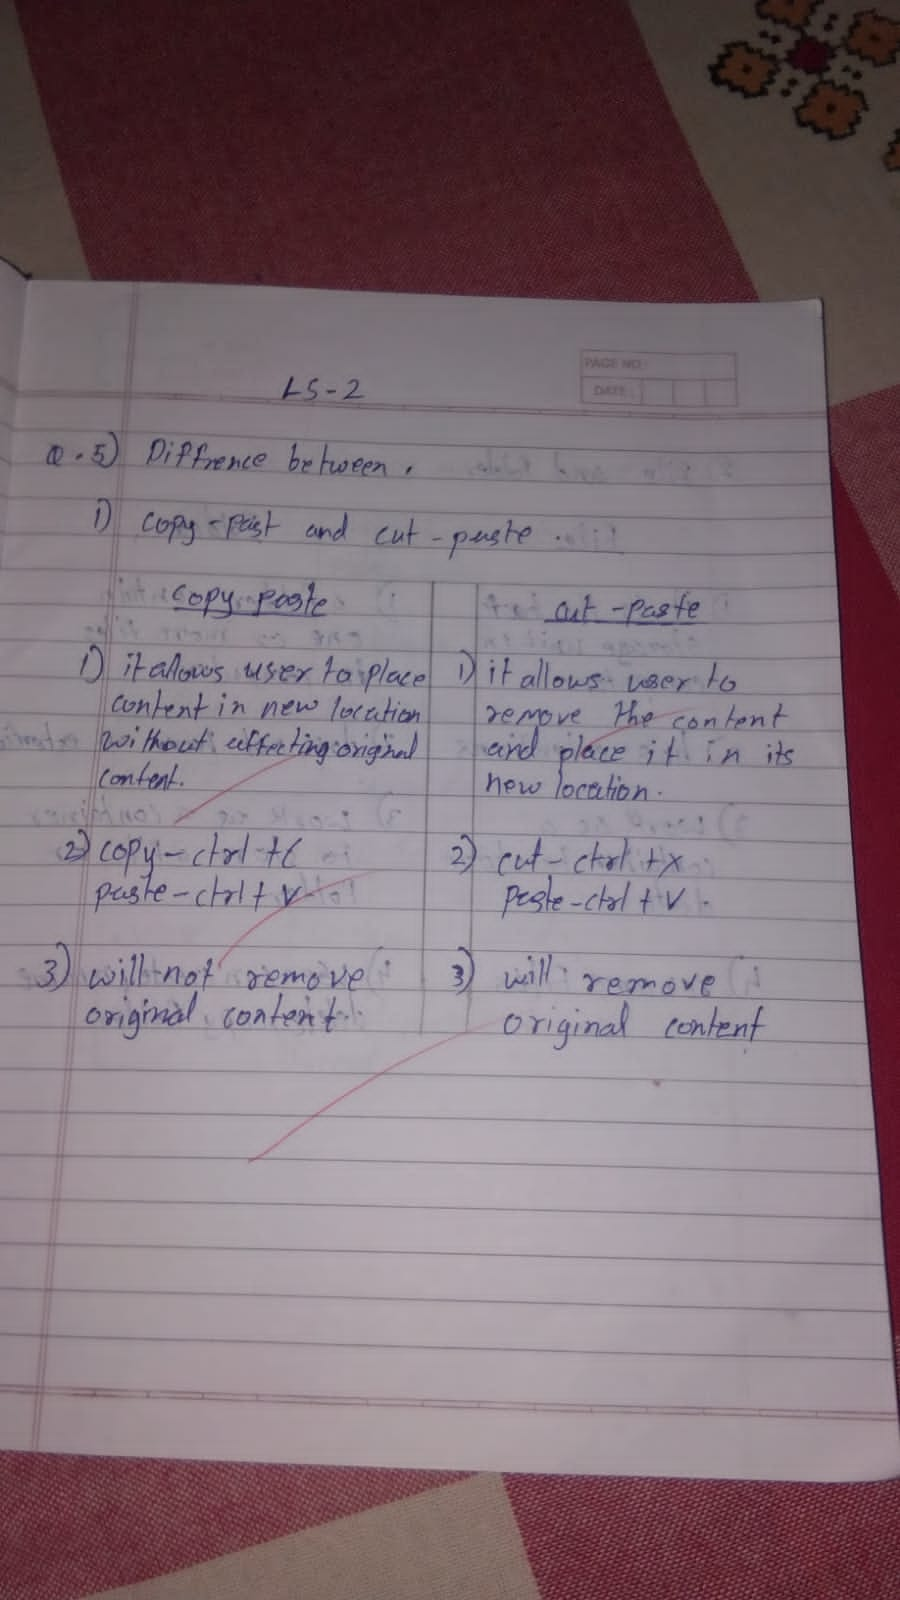 PAGE NO:
DATE:
LS-2
Q.5) Diffrence between.
1) copy-past and cut-paste.
copy-paste
1) it allows user to place
content in new location
without effecting original
content.
2) copy-ctrl+C
paste-ctrl+V
3) will not remove
original content.
cut-paste
1) it allows user to
remove the content
and place it in its
new location.
2) cut-ctrl+X
paste-ctrl+V.
3) will remove
original content